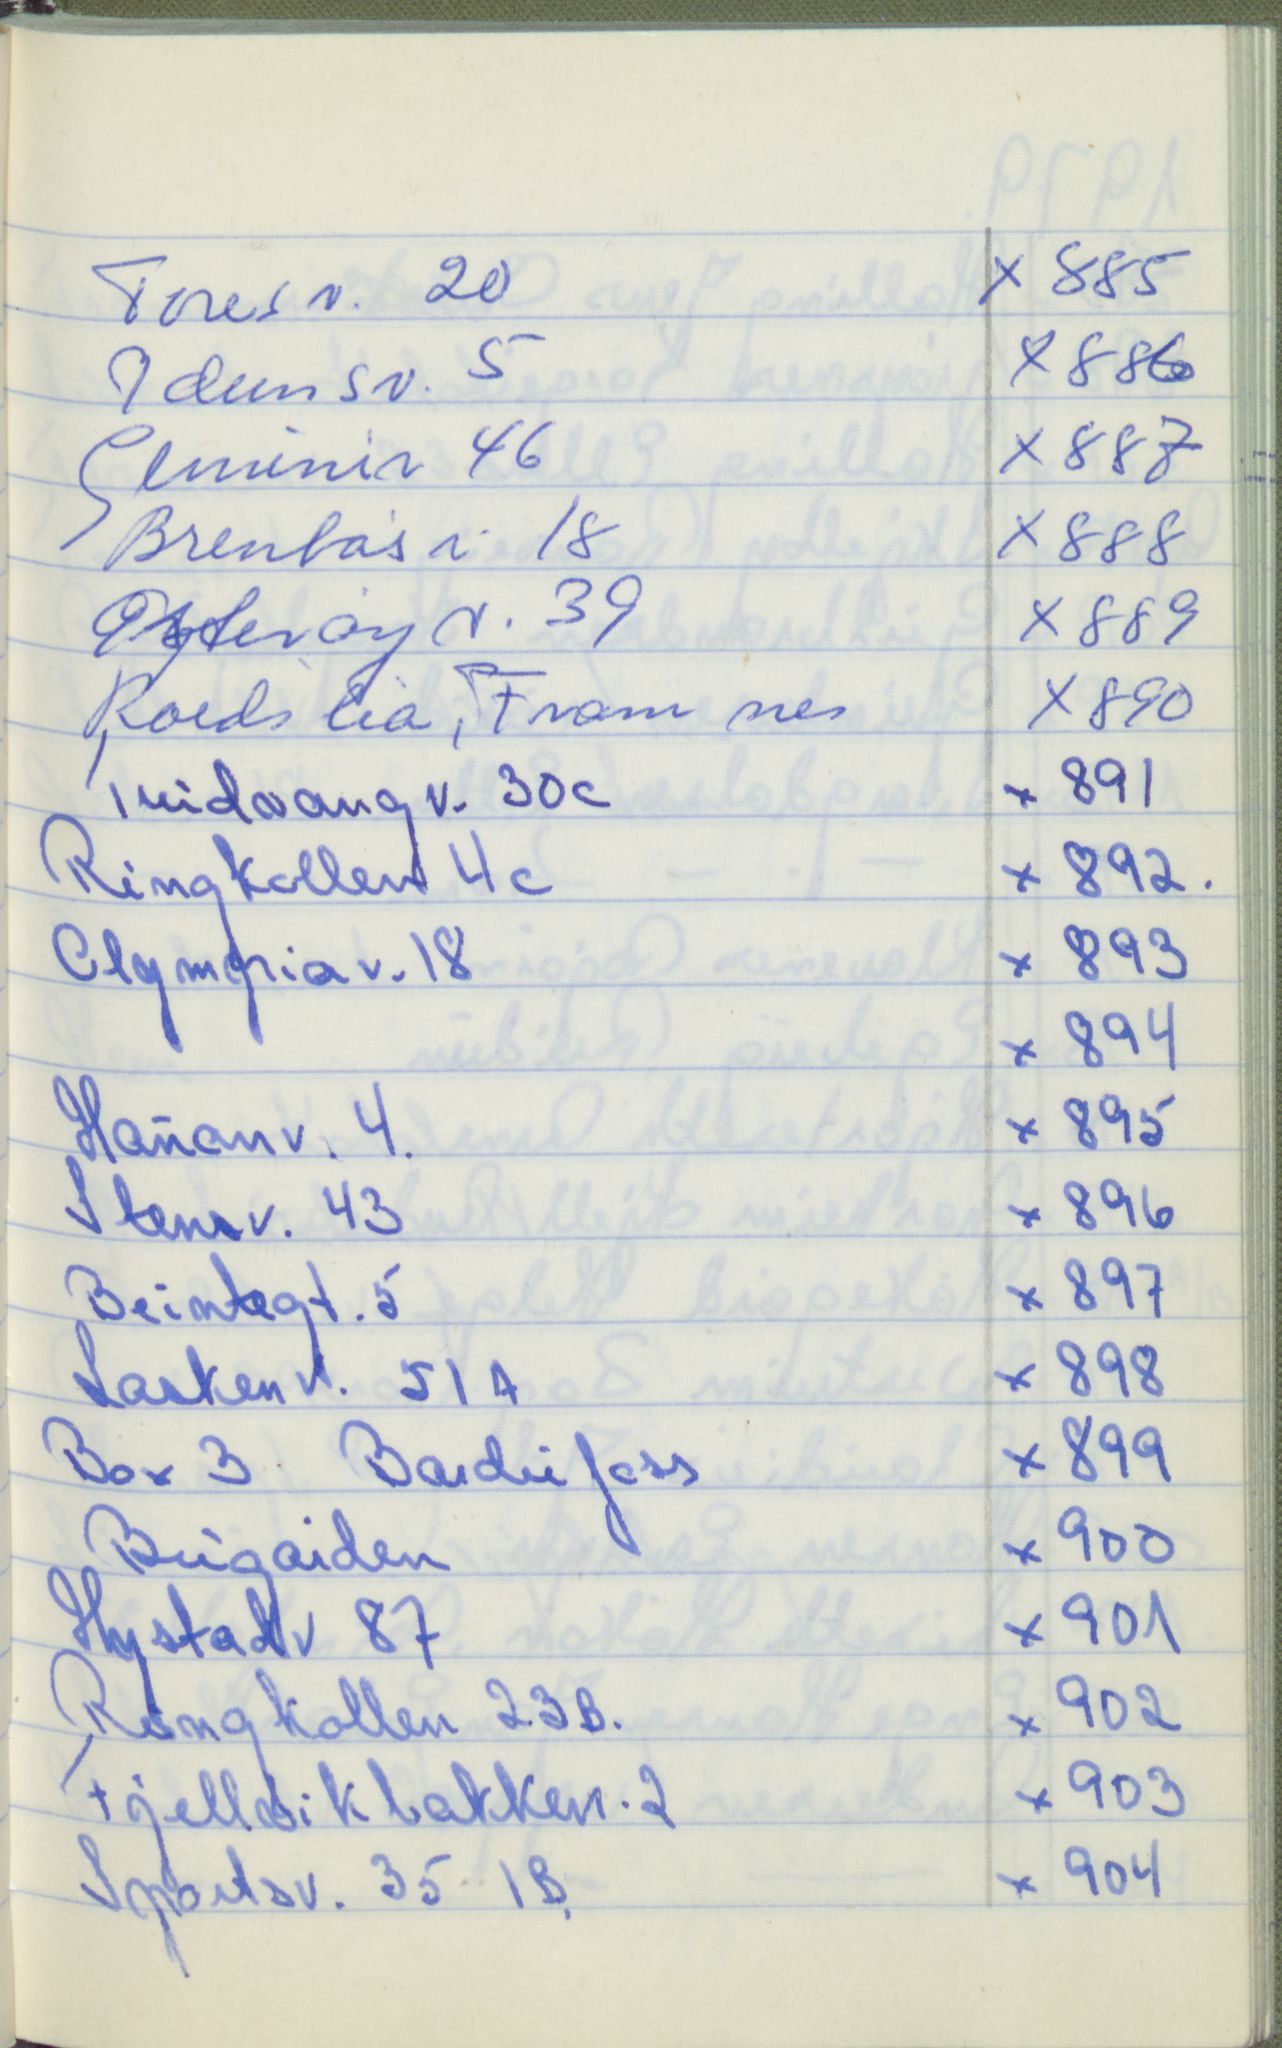 Toresv. 20 x 885
Idunsv. 5 x 886
Geminiv 46 x 887
Brenbåsv. 18 x 888
Østerøyv. 39 x 889
Roeds lia, Framnes x 890
Midvangv. 30c x 891
Ringkollen 4c x 892.
Olympiav. 18 x 893
x 894
Håkanv. 4. x 895
Stensv. 43 x 896
Beintegt. 5 x 897
Laskenv. 51A x 898
Box 3 Bardufoss x 899
Brigaiden x 900
Hystadv 87 x 901
Ringkollen 23B. x 902
Fjellvikbakken. 2 x 903
Sportsv. 35 1B. x 904